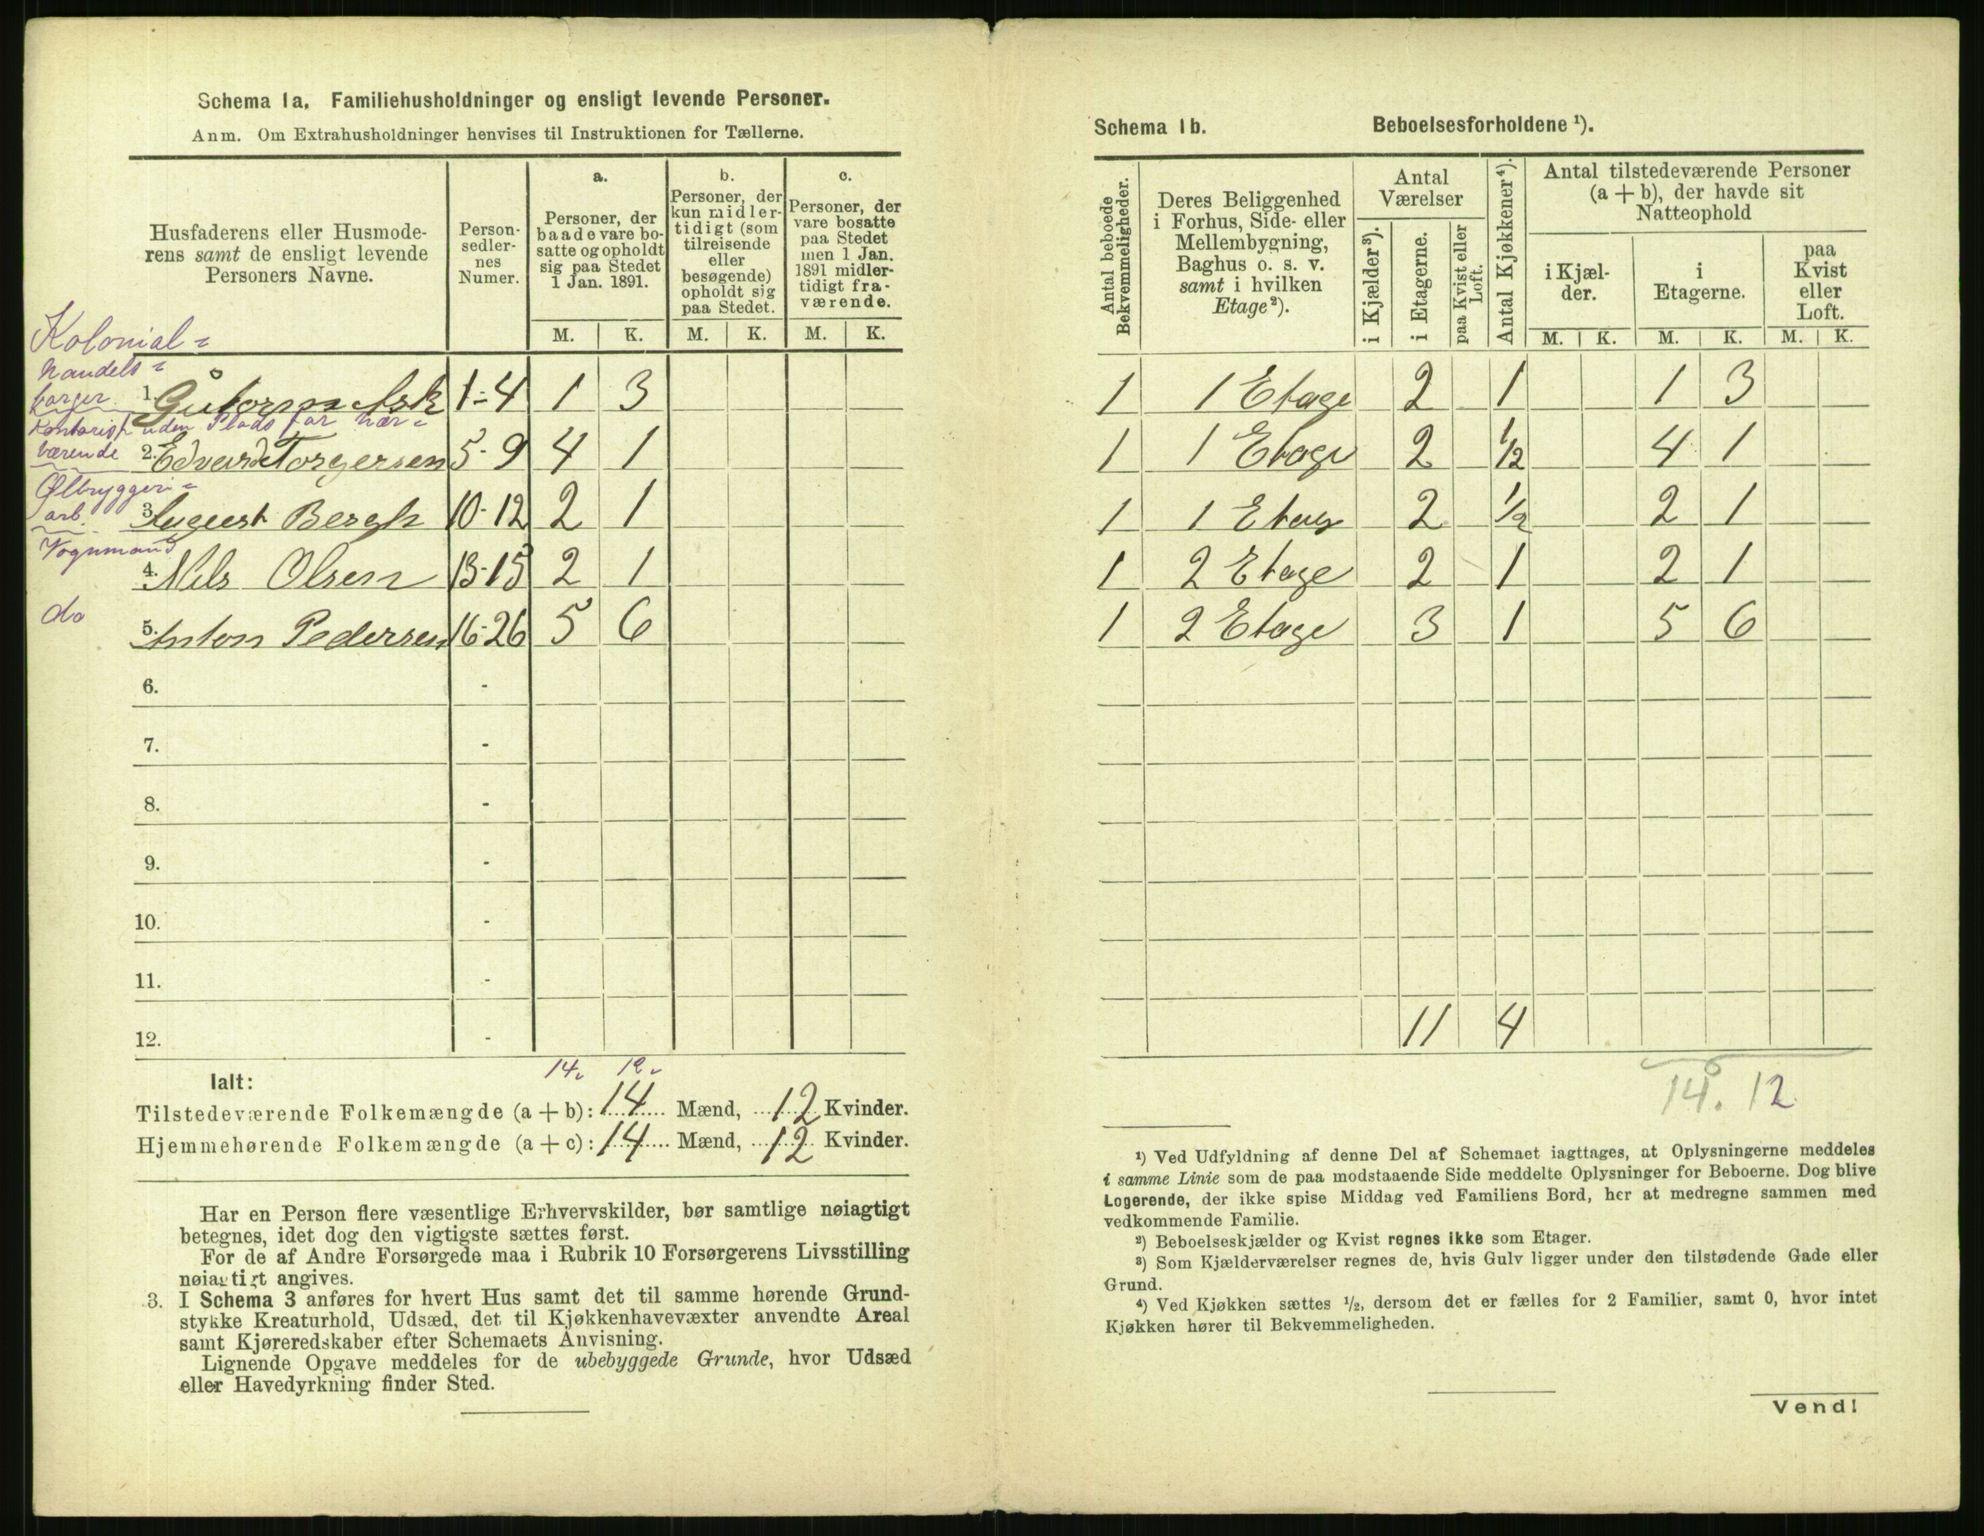 Schema 1a. Familiehusholdninger og ensligt levende Personer.
Anm. Om Extrahusholdninger henvises til Instruktionen for Tællerne.
Husfaderens eller Husmode-
rens samt de ensligt levende
Personers Navne.
Person-
sedler-
nes
Numer.
a.
Personer, der
baade vare bo-
satte og opholdt
sig paa Stedet
1 Jan. 1891.
b.
Personer, der
kun midler-
tidigt (som
tilreisende
eller
besøgende)
opholdt sig
paa Stedet.
c.
Personer, der
vare bosatte
paa Stedet
men 1 Jan.
1891 midler-
tidigt fra-
værende.
M. K. M. K. M. K.
Kolonial=
handels=
borger
1. Gutorm Ask 1-4 1 3
Kontorist uden Plads for nær=
værende
2. Edvard Torgersen 5-9 4 1
Ølbryggeri=
arb.
3. August Bergh 10-12 2 1
Vognmand
4. Nils Olsen 13-15 2 1
do
5. Anton Pedersen 16-26 5 6
6. -
7. -
8. -
9. -
10. -
11. -
12. -
14. 12.
Ialt:
Tilstedeværende Folkemængde (a + b): 14 Mænd, 12 Kvinder.
Hjemmehørende Folkemængde (a + c): 14 Mænd, 12 Kvinder.
Har en Person flere væsentlige Erhvervskilder, bør samtlige nøiagtigt
betegnes, idet dog den vigtigste sættes først.
For de af Andre Forsørgede maa i Rubrik 10 Forsørgerens Livsstilling
nøiagtigt angives.
3. I Schema 3 anføres for hvert Hus samt det til samme hørende Grund-
stykke Kreaturhold, Udsæd, det til Kjøkkenhavevæxter anvendte Areal
samt Kjøreredskaber efter Schemaets Anvisning.
Lignende Opgave meddeles for de ubebyggede Grunde, hvor Udsæd
eller Havedyrkning finder Sted.
Schema 1b. Beboelsesforholdene ¹).
Antal beboede
Bekvemmeligheder.
Deres Beliggenhed
i Forhus, Side- eller
Mellembygning,
Baghus o. s. v.
samt i hvilken
Etage ²).
Antal
Værelser
i Kjælder ³).
i Etagerne.
paa Kvist eller
Loft.
Antal Kjøkkener ⁴).
Antal tilstedeværende Personer
(a + b), der havde sit
Natteophold
i Kjæl-
der.
i
Etagerne.
paa
Kvist
eller
Loft.
M. K. M. K. M. K.
1 1 Etage 2 1 1 3
1 1 Etage 2 1/2 4 1
1 1 Etag 2 1/2 2 1
1 2 Etage 2 1 2 1
1 2 Etage 3 1 5 6
11 4
14. 12
¹) Ved Udfyldning af denne Del af Schemaet iagttages, at Oplysningerne meddeles
i samme Linie som de paa modstaaende Side meddelte Oplysninger for Beboerne. Dog blive
Logerende, der ikke spise Middag ved Familiens Bord, her at medregne sammen med
vedkommende Familie.
²) Beboelseskjælder og Kvist regnes ikke som Etager.
³) Som Kjælderværelser regnes de, hvis Gulv ligger under den tilstødende Gade eller
Grund.
⁴) Ved Kjøkken sættes ¹/₂, dersom det er fælles for 2 Familier, samt 0, hvor intet
Kjøkken hører til Bekvemmeligheden.
Vend!